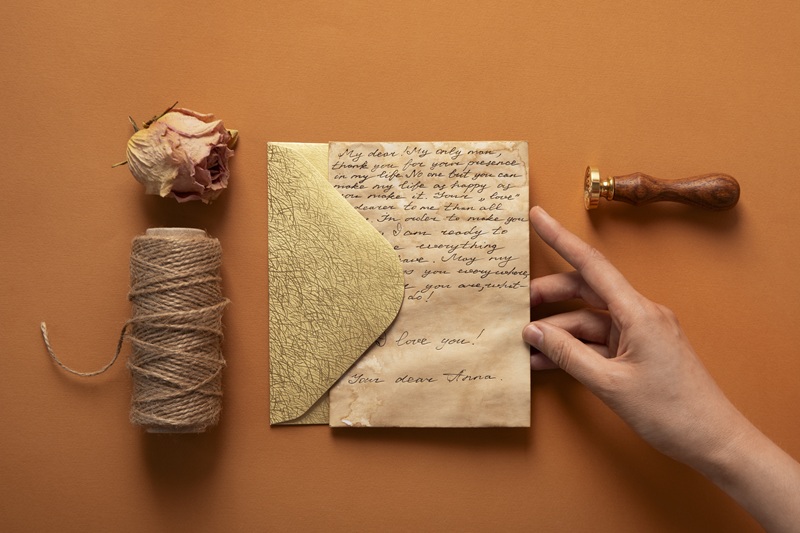 My dear! My only man
thank you for your presence
in my life. No one but you can
make my life as happy as
you make it. Your „love"
dearer to me than all
In order to make you
I am ready to
everything
May my
you everywhere,
you are, what-
do!
I love you!
Your dear Anna.